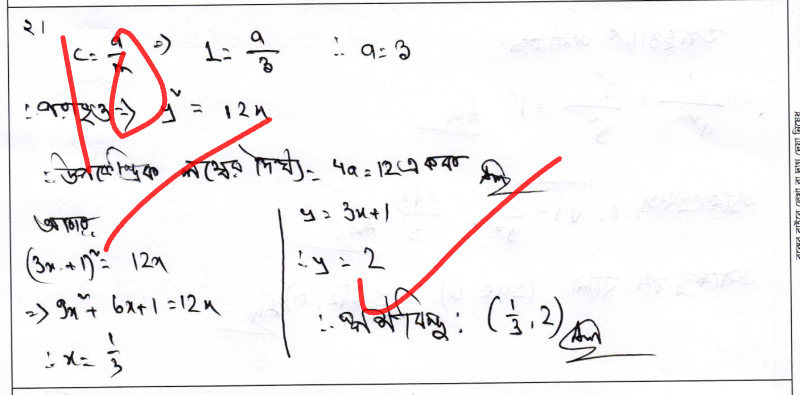 ২।
c = a/m ⇒ 1 = a/3 ∴ a = 3
∴ পরাবৃত্ত ⇒ y² = 12x
∴ উপকেন্দ্রিক লম্বের দৈর্ঘ্য = 4a = 12 একক
আবার,
(3x + 1)² = 12x
⇒ 9x² + 6x + 1 = 12x
∴ x = 1/3
y = 3x + 1
∴ y = 2
∴ স্পর্শবিন্দু : (1/3, 2)